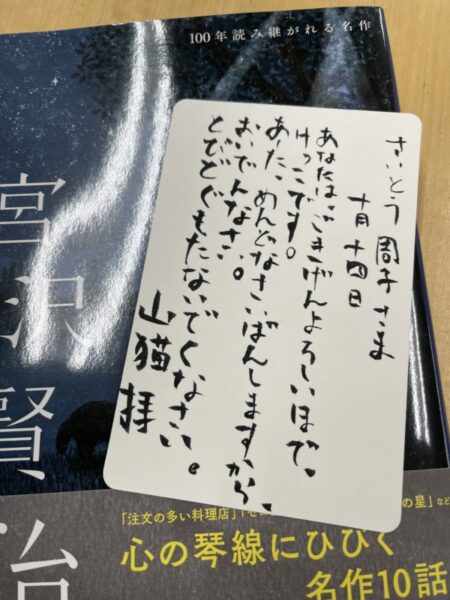 100年読み継がれる名作
宮沢賢治
さいとう 周子さま
十月十四日
あなたは、ごきげんよろしいほで、
けっこです。
あした、めんどなさいばんしますから、
おいでんなさい。
とびどぐもたないでくなさい。
山猫 拝
「注文の多い料理店」 の星」など
心の琴線にひびく
名作10話